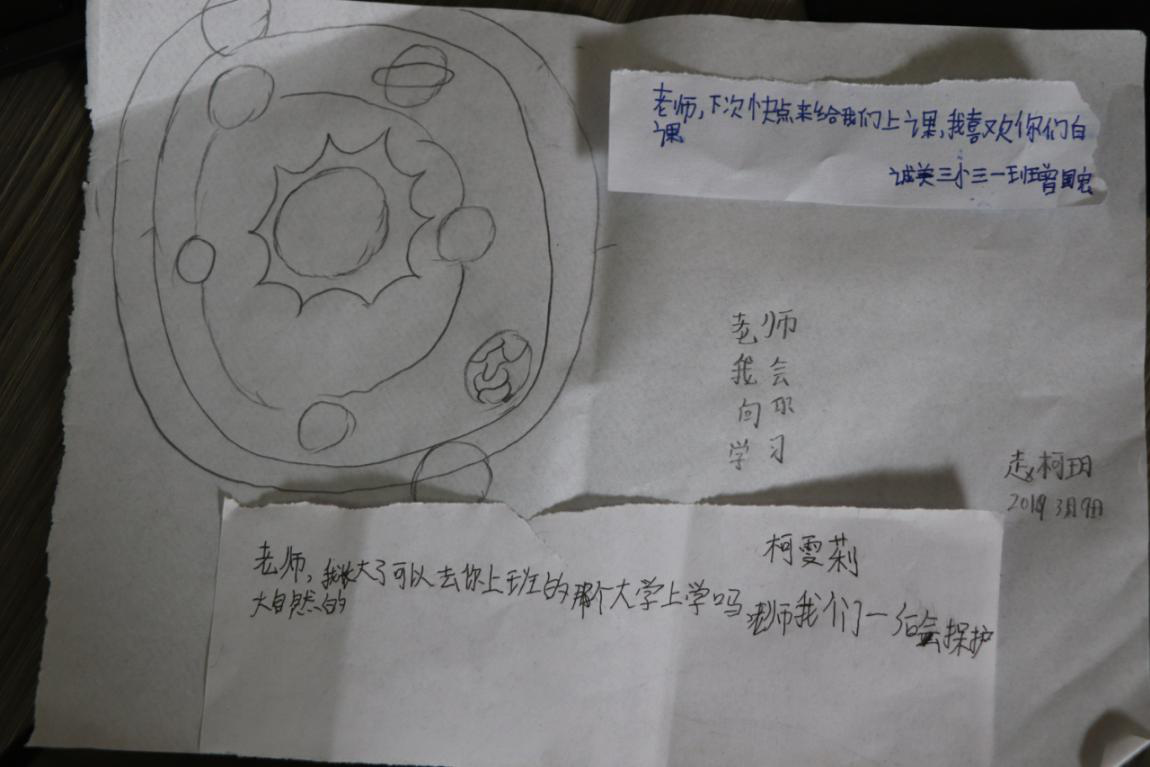 老师,下次快点来给我们上课,我喜欢你们白
课
诚美三小三一班曾国宏
老师
我会
向你
学习
赵柯玥
2019 3月9日
柯雯莉
老师,我长大了可以去你上班的那个大学上学吗 老师我们一后会探护
大自然的